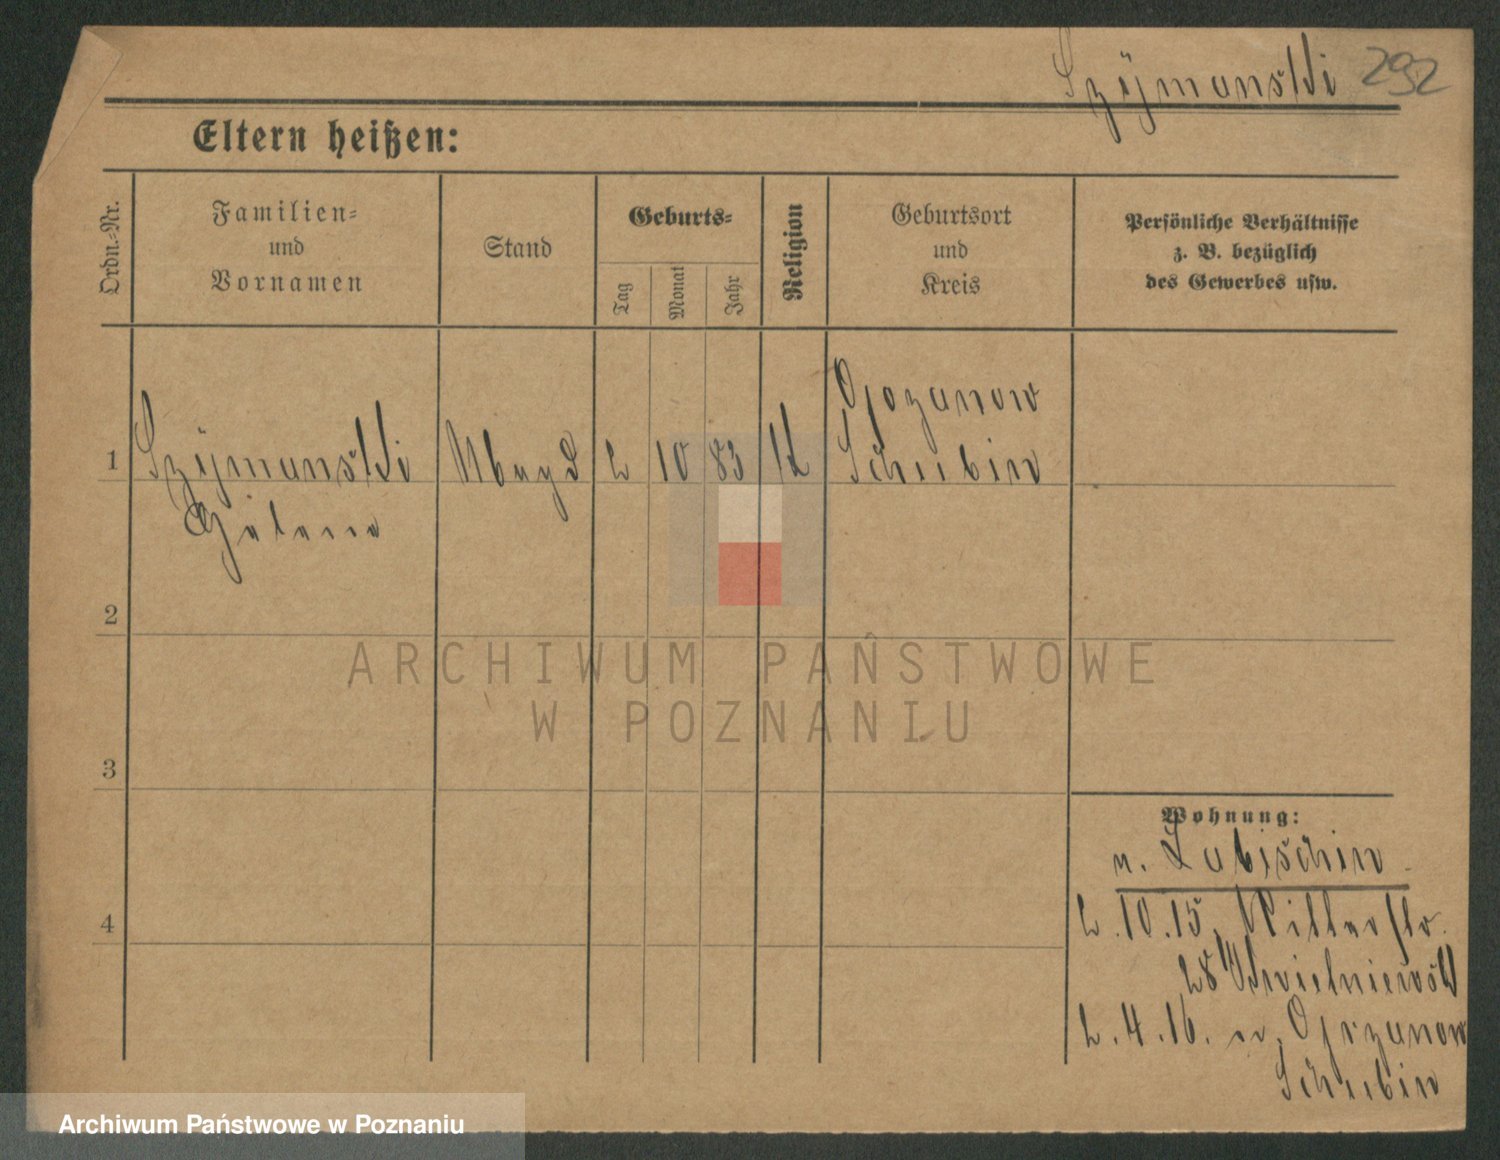 Szymanski 292
Eltern heißen:
Ordn.-Nr.
Familien-
und
Vornamen
Stand
Geburts-
Tag
Monat
Jahr
Religion
Geburtsort
und
Kreis
Persönliche Verhältnisse
z. B. bezüglich
des Gewerbes usw.
1
Szymanski
2 10 83
Schubin
2
3
4
Wohnung:
n. Labischin
2.10.15. Ritterstr.
28
2.4.16. n.
Schubin
ARCHIWUM PAŃSTWOWE
W POZNANIU
Archiwum Państwowe w Poznaniu